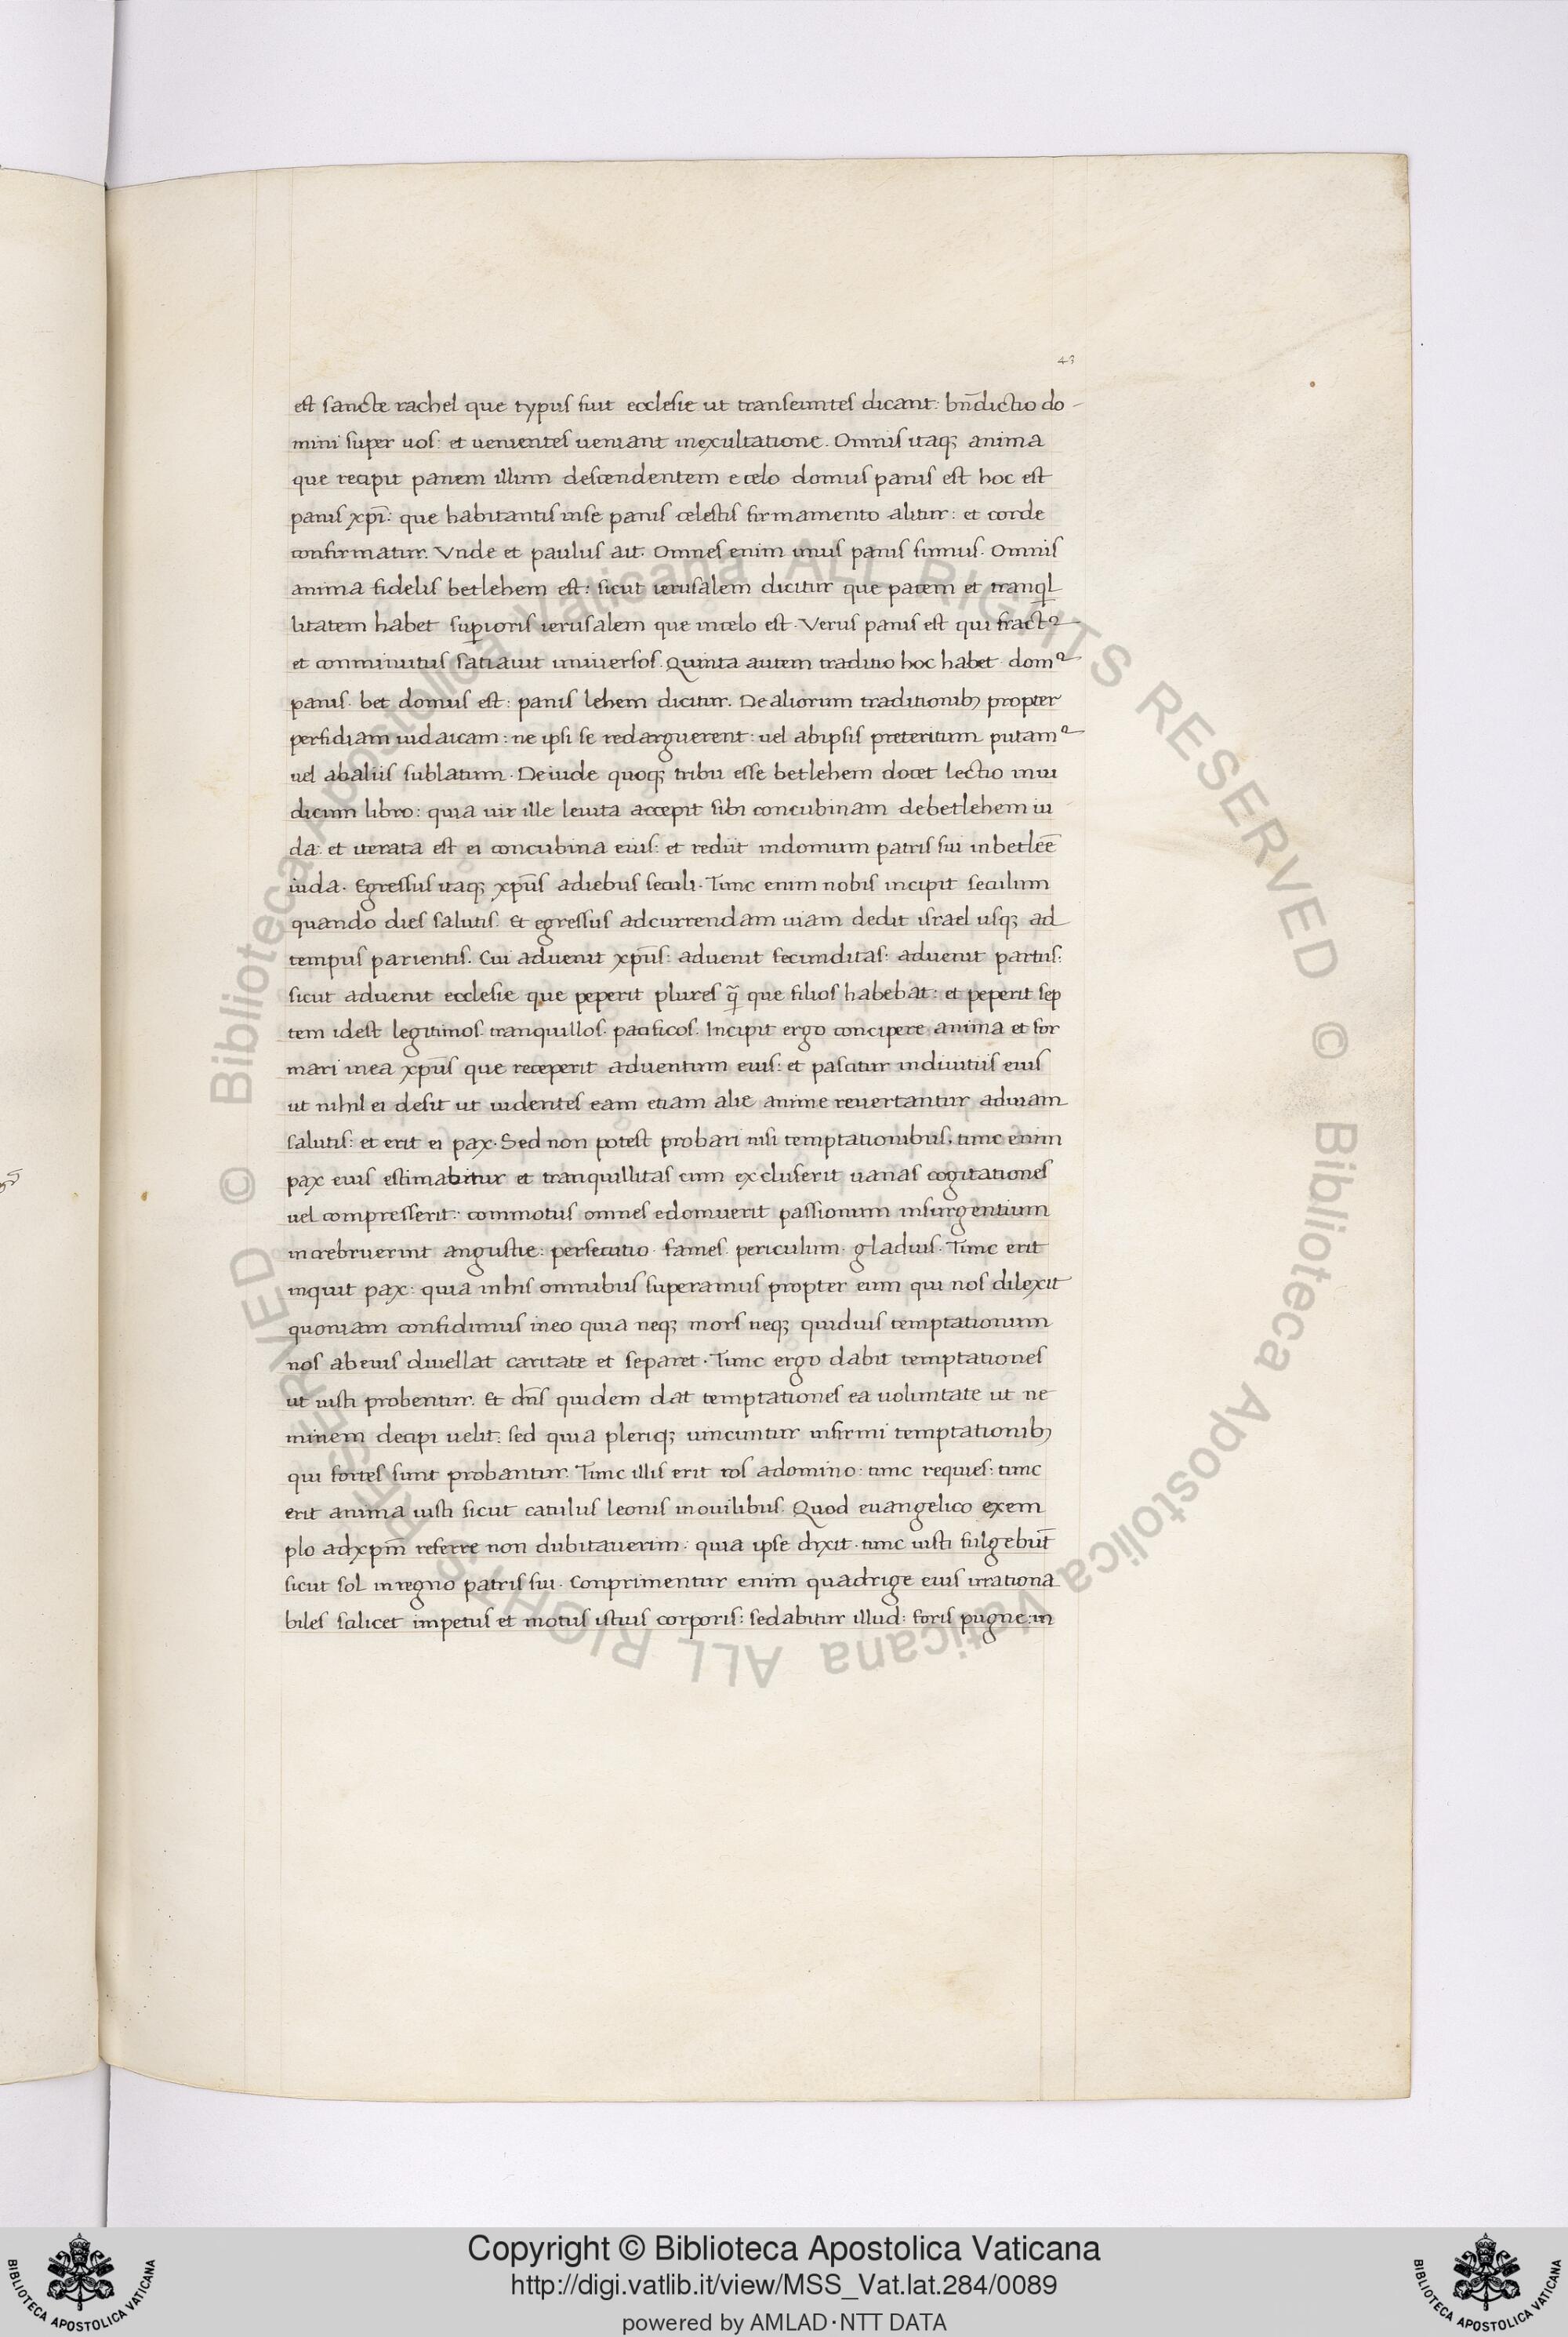 43
est sancte rachel que typus fuit ecclesie ut transeuntes dicant: bn̄dictio do-
mini super uos: et uenientes ueniant inexultatione. Omnis itaq; anima
que recipit panem illum descendentem e celo domus panis est hoc est
panis xp̄i: que habitantis inse panis celestis firmamento alitur: et corde
confirmatur. Vnde et paulus ait. Omnes enim unus panis sumus. Omnis
anima fidelis betlehem est: sicut ierusalem dicitur que pacem et tranql
litatem habet supioris ierusalem que incelo est. Verus panis est qui fractꝰ
et comminutus satiauit uniuersos. Quinta autem traditio hoc habet domꝰ
panis. bet domus est: panis lehem dicitur. De aliorum traditionibꝫ propter
perfidiam iudaicam: ne ipsi se redarguerent: uel abipsis preteritum putamꝰ
uel abaliis sublatum. Deiude quoq; tribu esse betlehem docet lectio in iu
dicum libro: quia uir ille leuita accepit sibi concubinam debetlehem iu
da. et iterata est ei concubina eius: et rediit indomum patris sui inbetleē
iuda. Egressus itaq; xp̄us adiebus seculi. Tunc enim nobis incipit seculum
quando dies salutis. Et egressus adcurrendam uiam dedit israel usq; ad
tempus parientis. Cui aduenit xp̄us: aduenit fecunditas: aduenit partus:
sicut aduenit ecclesie que peperit plures q̃ que filios habebat: et peperit sep
tem idest legitimos. tranquillos. pacificos. Incipit ergo concipere anima et for
mari inea xp̄us que receperit aduentum eius: et pascitur indiuitiis eius
ut nihil ei desit ut uidentes eam etiam alie anime reuertantur aduiam
salutis: et erit ei pax. Sed non potest probari nisi temptationibus. tunc enim
pax eius estimabitur et tranquillitas cum excluserit uanas cogitationes
uel compresserit: commotus omnes edomuerit passionum insurgentium
increbruerint angustie: persecutio. fames. periculum. gladius. Tunc erit
inquit pax: quia inhis omnibus superamus propter eum qui nos dilexit
quoniam confidimus ineo quia neq; mors neq; quiduis temptationum
nos abeius diuellat caritate et separet. Tunc ergo dabit temptationes
ut iusti probentur. Et dn̄s quidem dat temptationes ea uoluntate ut ne
minem decipi uelit: sed quia pleriq; uincuntur infirmi temptationibꝫ
qui fortes sunt probantur. Tunc illis erit ros adomino: tunc requies: tunc
erit anima iusti sicut catulus leonis inouilibus. Quod euangelico exem
plo adxpm̄ referre non dubitauerim: quia ipse dixit. tunc iusti fulgebut̄
sicut sol inregno patris sui. Conprimentur enim quadrige eius irrationa
biles scilicet impetus et motus istius corporis: sedabitur illud: foris pugne: in
© Biblioteca Apostolica Vaticana ALL RIGHTS RESERVED © Biblioteca Apostolica Vaticana ALL RIGHTS RESERVED
Copyright © Biblioteca Apostolica Vaticana
http://digi.vatlib.it/view/MSS_Vat.lat.284/0089
powered by AMLAD·NTT DATA
BIBLIOTECA APOSTOLICA VATICANA
BIBLIOTECA APOSTOLICA VATICANA